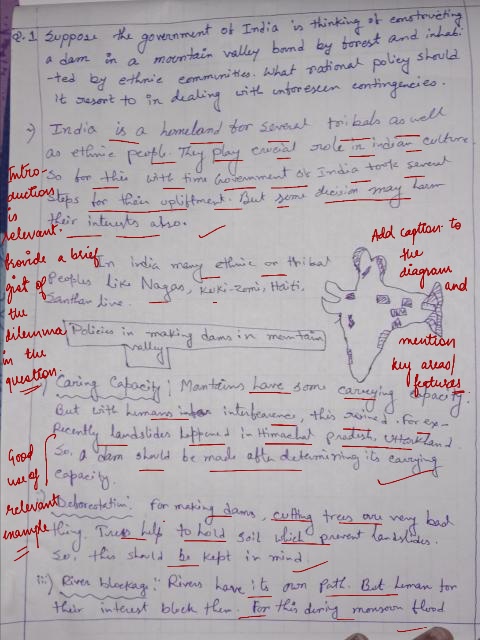 Q.1 Suppose the government of India is thinking of constructing
a dam in a mountain valley bond by forest and inhabi
-ted by ethnic communities. What rational policy should
it resort to in dealing with unforeseen contingencies.
India is a homeland for several tribals as well
as ethnic people. They play crucial role in indian culture.
So for this with time Government of India took several
steps for their upliftment. But some decision may harm
their interests also.
Introductions is relevant.
Provide a brief gist of the dilemma in the question.
In india many ethnic or tribal
Peoples like Nagas, Kuki-zomi,
Santhar live.
Add caption to the diagram and mention key areas/ features
Policies in making dams in mountain
valley
i) Caring Capacity: Mountains have some carrying capacity.
But with humans interference, this ruined. For ex-
Recently landslides happened in Himachal pradesh, Uttarkhand
So, a dam should be made after determining its carrying
capacity.
Good use of relevant example
Deforestation: For making dams, cutting trees are very bad
thing. Trees help to hold soil which prevent landslides.
So, this should be kept in mind.
iii) River blockage: Rivers have its own path. But human for
their interest block them. For this during monsoon flood